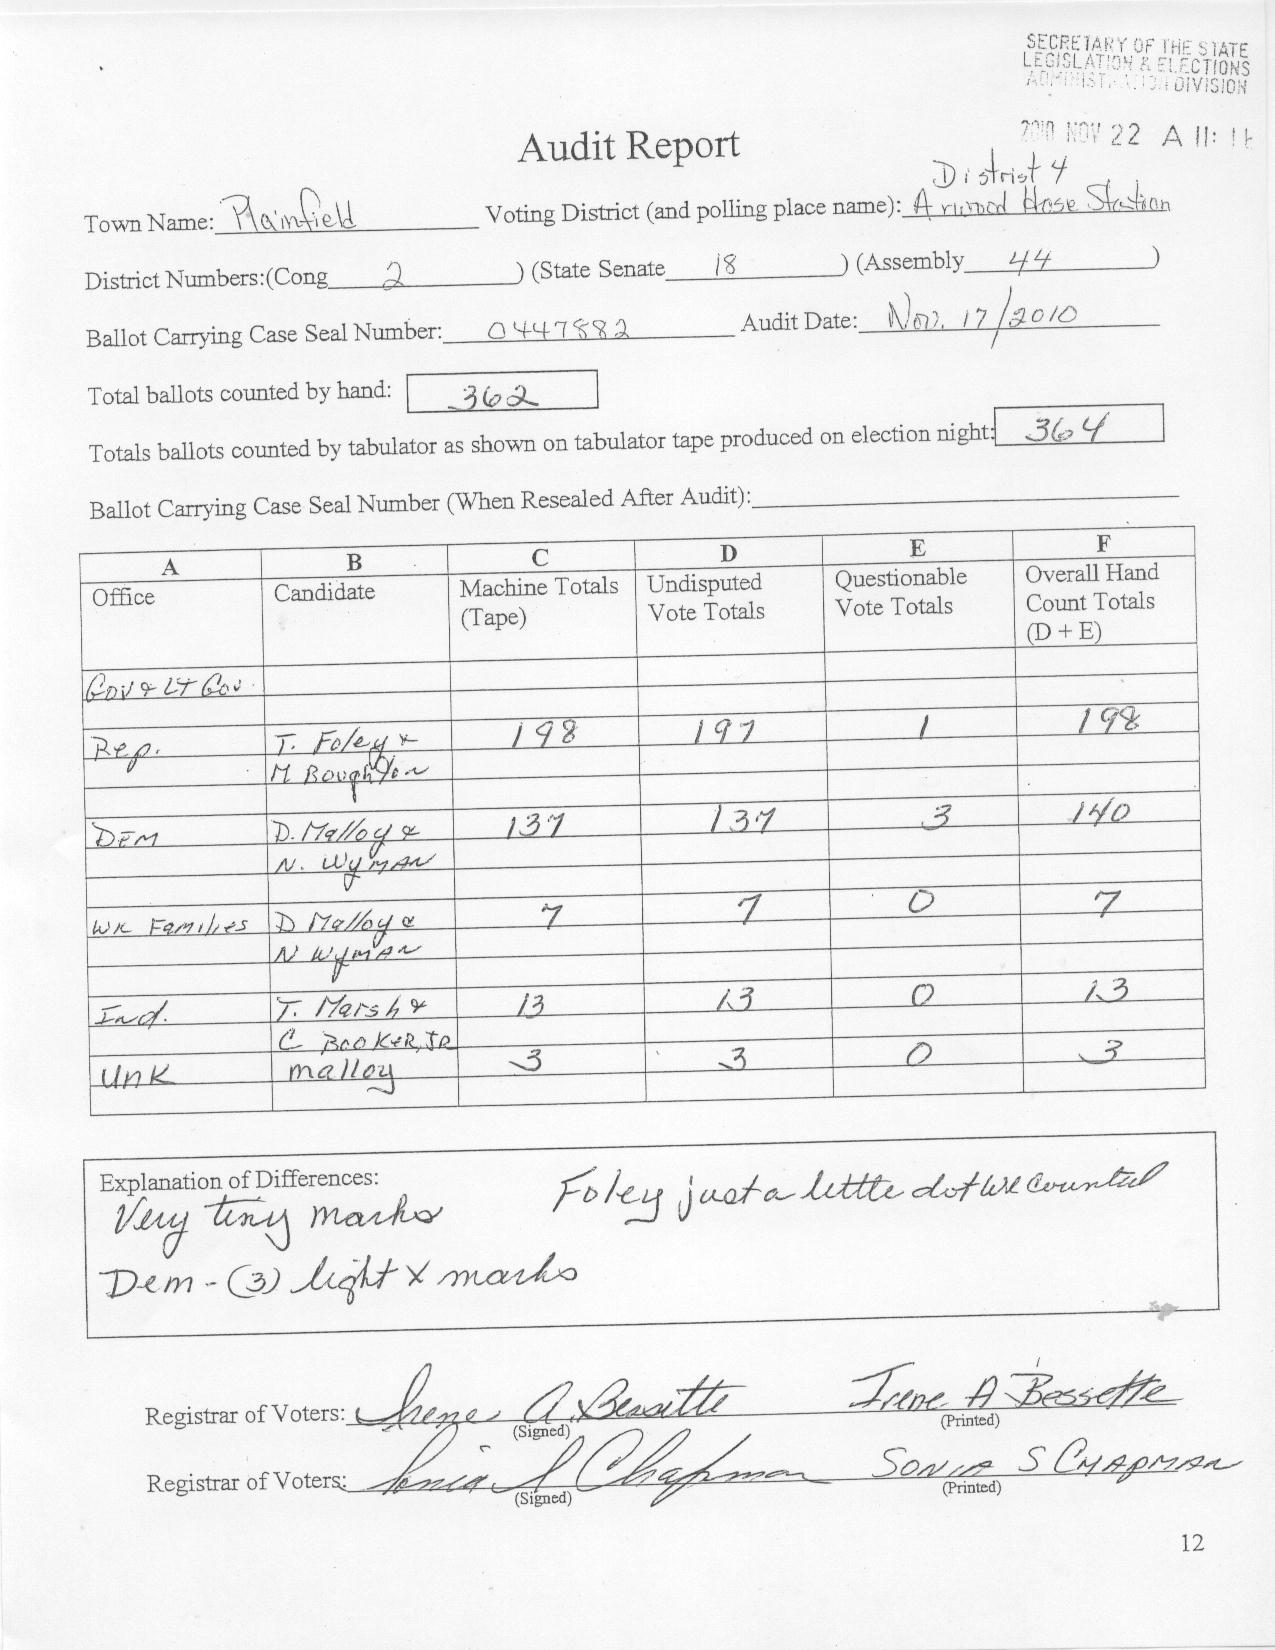 SECRETARY OF THE STATE
LEGISLATION & ELECTIONS
ADMINISTRATION DIVISION
2010 NOV 22 A 11:
Audit Report
District 4
Town Name: Plainfield Voting District (and polling place name): Hose Station
District Numbers:(Cong 2 ) (State Senate 18 ) (Assembly 44 )
Ballot Carrying Case Seal Number: 0447882 Audit Date: Nov. 17/2010
Total ballots counted by hand: 362
Totals ballots counted by tabulator as shown on tabulator tape produced on election night: 364
Ballot Carrying Case Seal Number (When Resealed After Audit):
A B C D E F
Office Candidate Machine Totals Undisputed Questionable Overall Hand
(Tape) Vote Totals Vote Totals Count Totals
(D + E)
Gov & LT Gov.
Rep. T. Foley & 198 197 1 198
M Boughton
DEM D. Malloy & 137 137 3 140
N. WYMAN
WK Families D Malloy & 7 7 0 7
N WYMAN
Ind. T. Marsh & 13 13 0 13
C BOOKER, JR
UNK malloy 3 3 0 3
Explanation of Differences: Foley just a little dot we counted
Very tiny marks
Dem - (3) light X marks
Registrar of Voters: Irene A. Bessette Irene A Bessette
(Signed) (Printed)
Registrar of Voters: Sonia S Chapman SONIA S CHAPMAN
(Signed) (Printed)
12